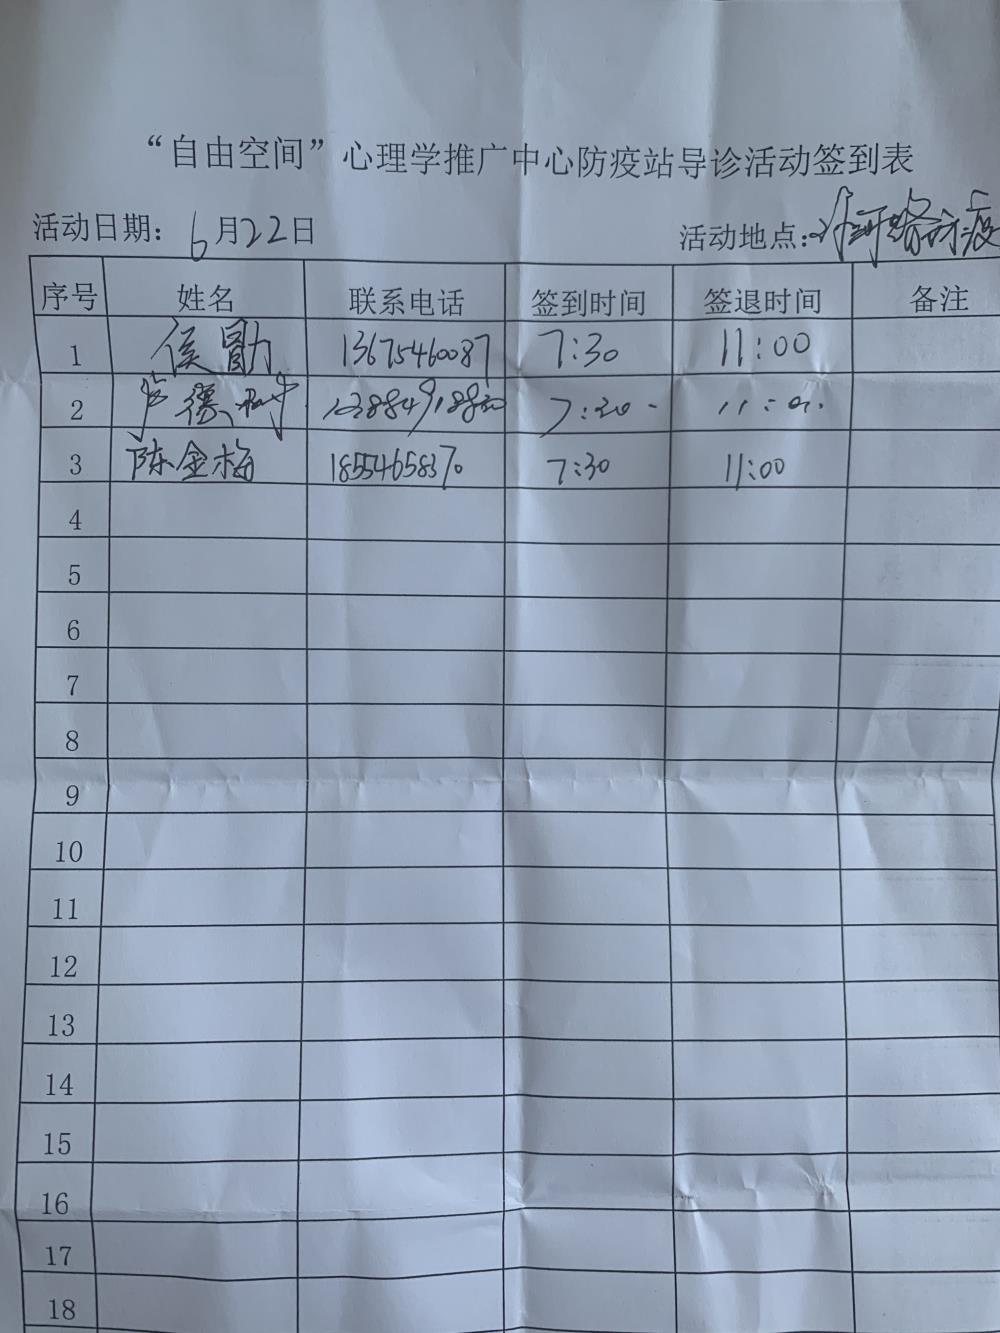 “自由空间”心理学推广中心防疫站导诊活动签到表
活动日期：6月22日 活动地点：河路防疫
序号 姓名 联系电话 签到时间 签退时间 备注
1 侯勖 13675460087 7:30 11:00
2 德 7:30 11:00
3 陈金梅 18554658370 7:30 11:00
4
5
6
7
8
9
10
11
12
13
14
15
16
17
18